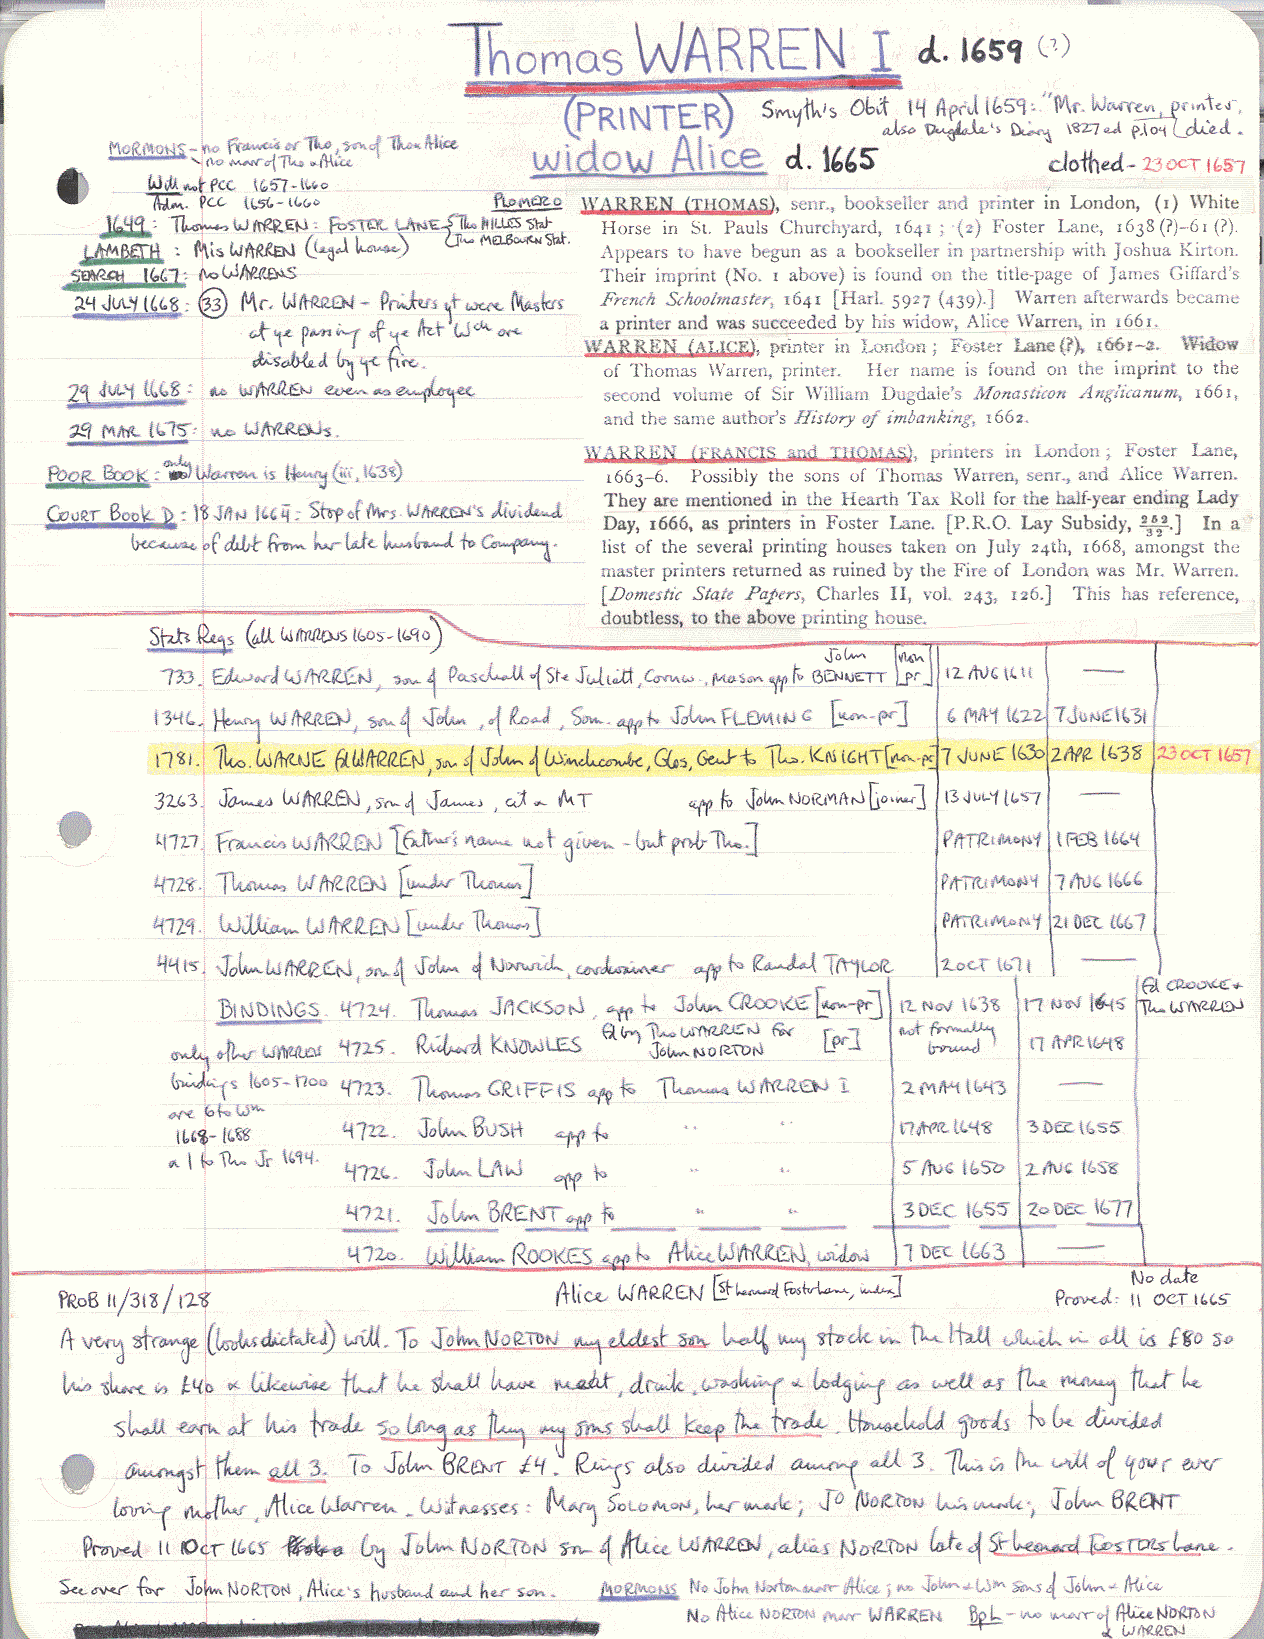 Thomas WARREN I d. 1659 (?)
(PRINTER) Smyth's Obit 14 April 1659: "Mr. Warren, printer,
also Dugdale's Diary 1827 ed p.104 died.
widow Alice d. 1665 clothed - 23 OCT 1657
MORMONS - no Francis or Tho, son of Tho & Alice
no marr of Tho & Alice
Will not PCC 1657-1660
Adm. PCC 1656-1660
1649: Thomas WARREN: FOSTER LANE { Tho HILLES Stat
Tho MELBOURN Stat.
LAMBETH: Mis WARREN (legal house)
SEARCH 1667: no WARRENS
24 JULY 1668: (33) Mr. WARREN - Printers yt were Masters
at ye passing of ye Act wch are
disabled by ye fire.
29 JULY 1668: no WARREN even as employee
29 MAR 1675: no WARRENs.
POOR BOOK: only Warren is Henry (iii, 1638)
COURT BOOK D: 18 JAN 1664: Stop of Mrs. WARREN's dividend
because of debt from her late husband to Company.
PLOMER
WARREN (THOMAS), senr., bookseller and printer in London, (1) White
Horse in St. Pauls Churchyard, 1641; (2) Foster Lane, 1638(?)-61(?).
Appears to have begun as a bookseller in partnership with Joshua Kirton.
Their imprint (No. 1 above) is found on the title-page of James Giffard's
French Schoolmaster, 1641 [Harl. 5927 (439).] Warren afterwards became
a printer and was succeeded by his widow, Alice Warren, in 1661.
WARREN (ALICE), printer in London; Foster Lane (?), 1661-2. Widow
of Thomas Warren, printer. Her name is found on the imprint to the
second volume of Sir William Dugdale's Monasticon Anglicanum, 1661,
and the same author's History of imbanking, 1662.
WARREN (FRANCIS and THOMAS), printers in London; Foster Lane,
1663-6. Possibly the sons of Thomas Warren, senr., and Alice Warren.
They are mentioned in the Hearth Tax Roll for the half-year ending Lady
Day, 1666, as printers in Foster Lane. [P.R.O. Lay Subsidy, 252/32.] In a
list of the several printing houses taken on July 24th, 1668, amongst the
master printers returned as ruined by the Fire of London was Mr. Warren.
[Domestic State Papers, Charles II, vol. 243, 126.] This has reference,
doubtless, to the above printing house.
Stat Regs (all WARRENS 1605-1690)
733. Edward WARREN, son of Paschall of Ste Juliatt, Cornw., mason app to John BENNETT [non pr] 12 AUG 1611 —
1346. Henry WARREN, son of John, of Road, Som. app to John FLEMING [non-pr] 6 MAY 1622 7 JUNE 1631
1781. Tho. WARNE WARREN, son of John of Winchcombe, Glos, Gent to Tho. KNIGHT [non-pr] 7 JUNE 1630 2 APR 1638 23 OCT 1657
3263. James WARREN, son of James, cit & MT app to John NORMAN [joiner] 13 JULY 1657 —
4727. Francis WARREN [father's name not given - but prob Tho.] PATRIMONY 1 FEB 1664
4728. Thomas WARREN [under Thomas] PATRIMONY 7 AUG 1666
4729. William WARREN [under Thomas] PATRIMONY 21 DEC 1667
4415. John WARREN, son of John of Norwich, cordwainer app to Randal TAYLOR 2 OCT 1671 —
BINDINGS. 4724. Thomas JACKSON, app to John CROOKE [non-pr] 12 NOV 1638 17 NOV 1645 fd CROOKE & Tho WARREN
4725. Richard KNOWLES fd by Tho WARREN for John NORTON [pr] not formally bound 17 APR 1648
only other WARREN
bindings 1605-1700
are 6 to Wm
1668-1688
& 1 to Tho Jr 1694.
4723. Thomas GRIFFIS app to Thomas WARREN I 2 MAY 1643 —
4722. John BUSH app to " " 17 APR 1648 3 DEC 1655
4726. John LAW app to " " 5 AUG 1650 2 AUG 1658
4721. John BRENT app to " " 3 DEC 1655 20 DEC 1677
4720. William ROOKES app to Alice WARREN, widow 7 DEC 1663 —
PROB 11/318/128 Alice WARREN [St Leonard Foster Lane, index] No date
Proved: 11 OCT 1665
A very strange (looks dictated) will. To John NORTON my eldest son half my stock in the Hall which in all is £80 so
his share is £40 & likewise that he shall have meat, drink, washing & lodging as well as the money that he
shall earn at his trade so long as they my sons shall keep the trade. Household goods to be divided
amongst them all 3. To John BRENT £4. Rings also divided among all 3. This is the will of your ever
loving mother, Alice Warren. Witnesses: Mary SOLOMON, her mark; JO NORTON his mark; John BRENT
Proved 11 OCT 1665 by John NORTON son of Alice WARREN, alias NORTON late of St Leonard FOSTERS Lane.
See over for John NORTON, Alice's husband and her son. MORMONS No John Norton marr Alice; no John & Wm sons of John & Alice
No Alice NORTON marr WARREN BpL - no marr of Alice NORTON
& WARREN